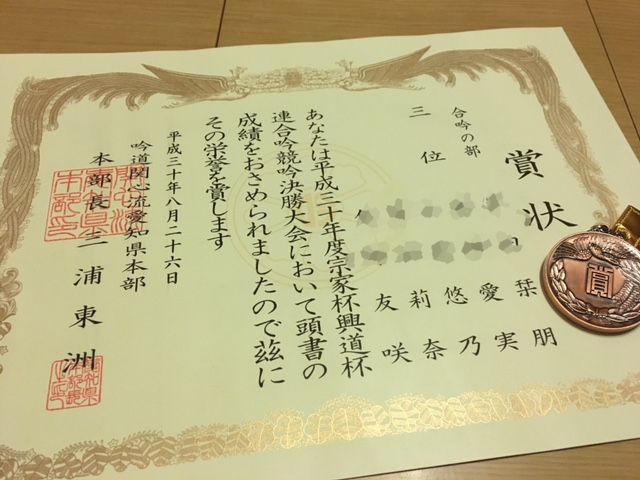 賞状
合吟の部
三位
栞 朋
愛 実
悠 乃
莉 奈
友 咲
あなたは平成三十年度宗家杯興道杯
連合吟競吟決勝大会において頭書の
成績をおさめられましたので茲に
その栄誉を賞します
平成三十年八月二十六日
吟道関心流愛知県本部
本部長 三浦東洲
賞